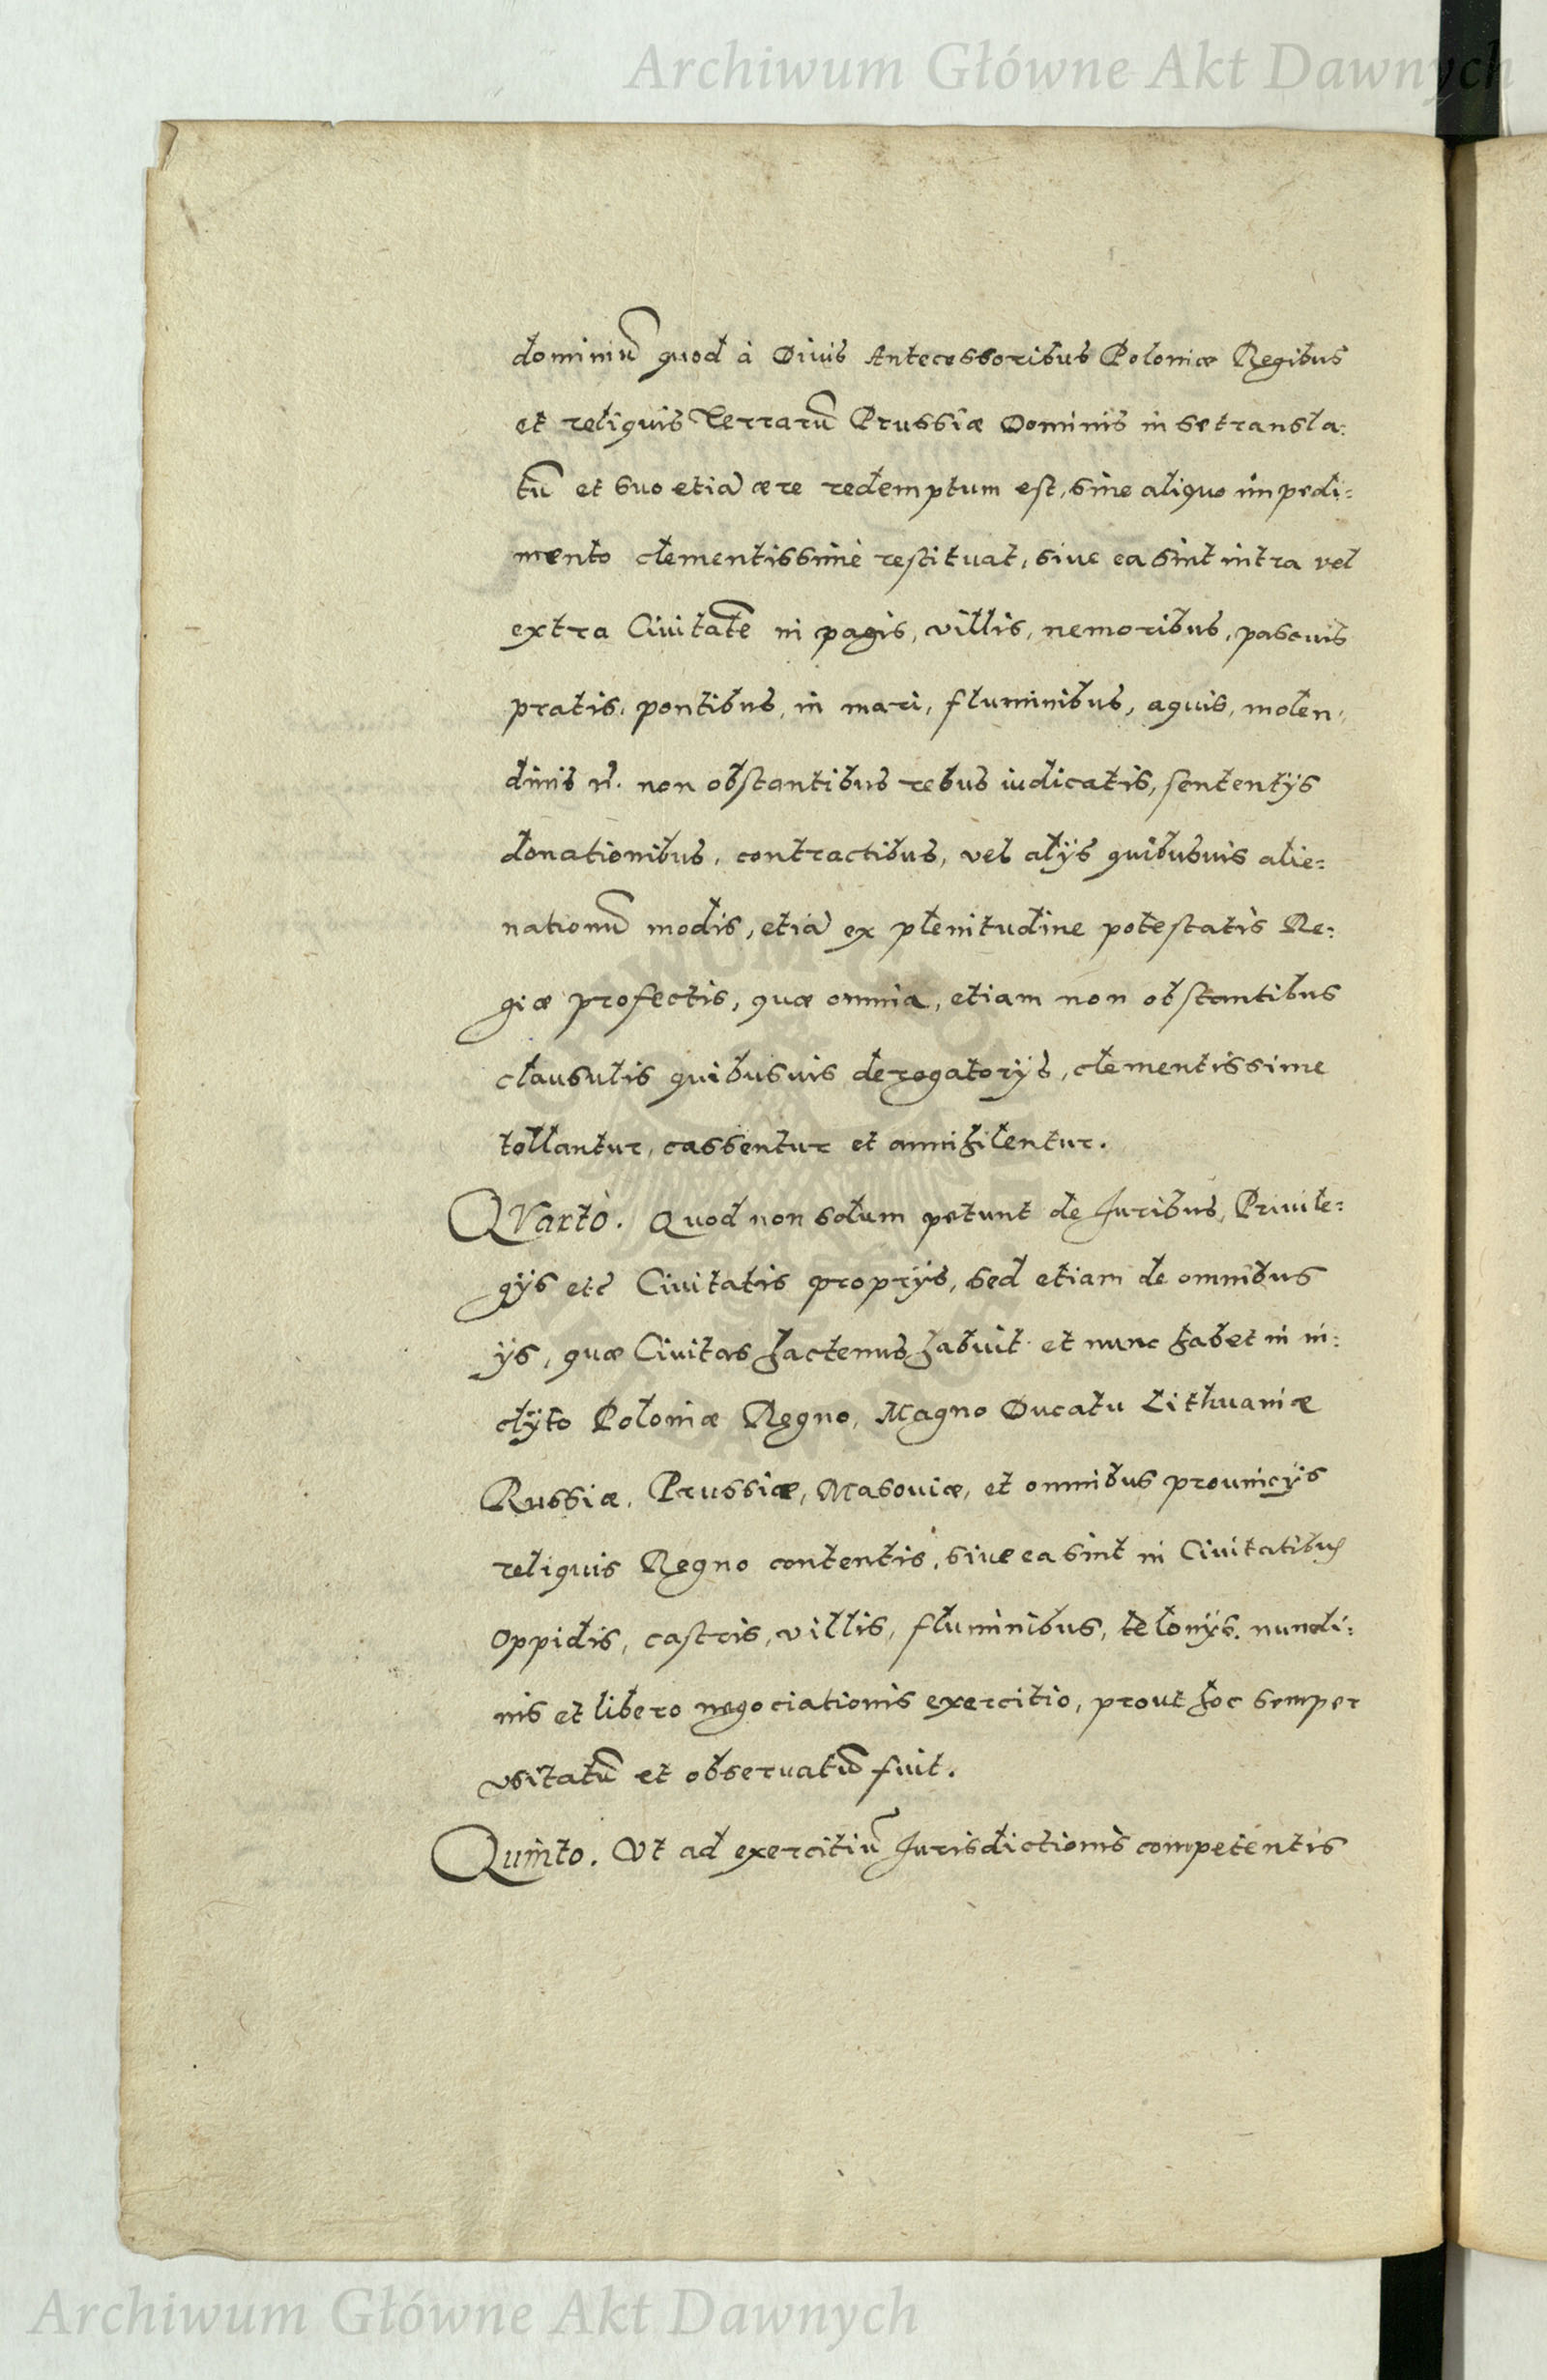 Archiwum Główne Akt Dawnych
dominiũ quod à Diuis Antecessoribus Poloniæ Regibus
et reliquis Terrarũ Prussiæ Dominis in se transla:
tũ et suo etiã ære redemptum est, sine aliquo impedi:
mento clementissimè restituat, siue ea sint intra vel
extra Ciuitatẽ in pagis, villis, nemoribus, pascuis
pratis, pontibus, in mari, fluminibus, aquis, molen:
dinis non obstantibus rebus iudicatis, sententijs
donationibus, contractibus, vel alijs quibusuis alie:
nationũ modis, etiã ex plenitudine potestatis Re:
giæ profectis, quæ omnia, etiam non obstantibus
clausulis quibusuis derogatorijs, clementissime
tollantur, cassentur et annihilentur.
QVartò. Quod non solum petunt de Juribus, Priuile:
gijs etc Ciuitatis proprijs, sed etiam de omnibus
ijs, quæ Ciuitas hactenus habuit et nunc habet in in:
clÿto Poloniæ Regno, Magno Ducatu Lithuaniæ
Russiæ, Prussiæ, Masouiæ, et omnibus prouincijs
reliquis Regno contentis, siue ea sint in Ciuitatibus
Oppidis, castris, villis, fluminibus, telonijs, nundi:
nis et libero negociationis exercitio, prout hoc semper
vsitatũ et obseruatũ fuit.
Quinto. Vt ad exercitiũ Jurisdictionis competentis
Archiwum Główne Akt Dawnych